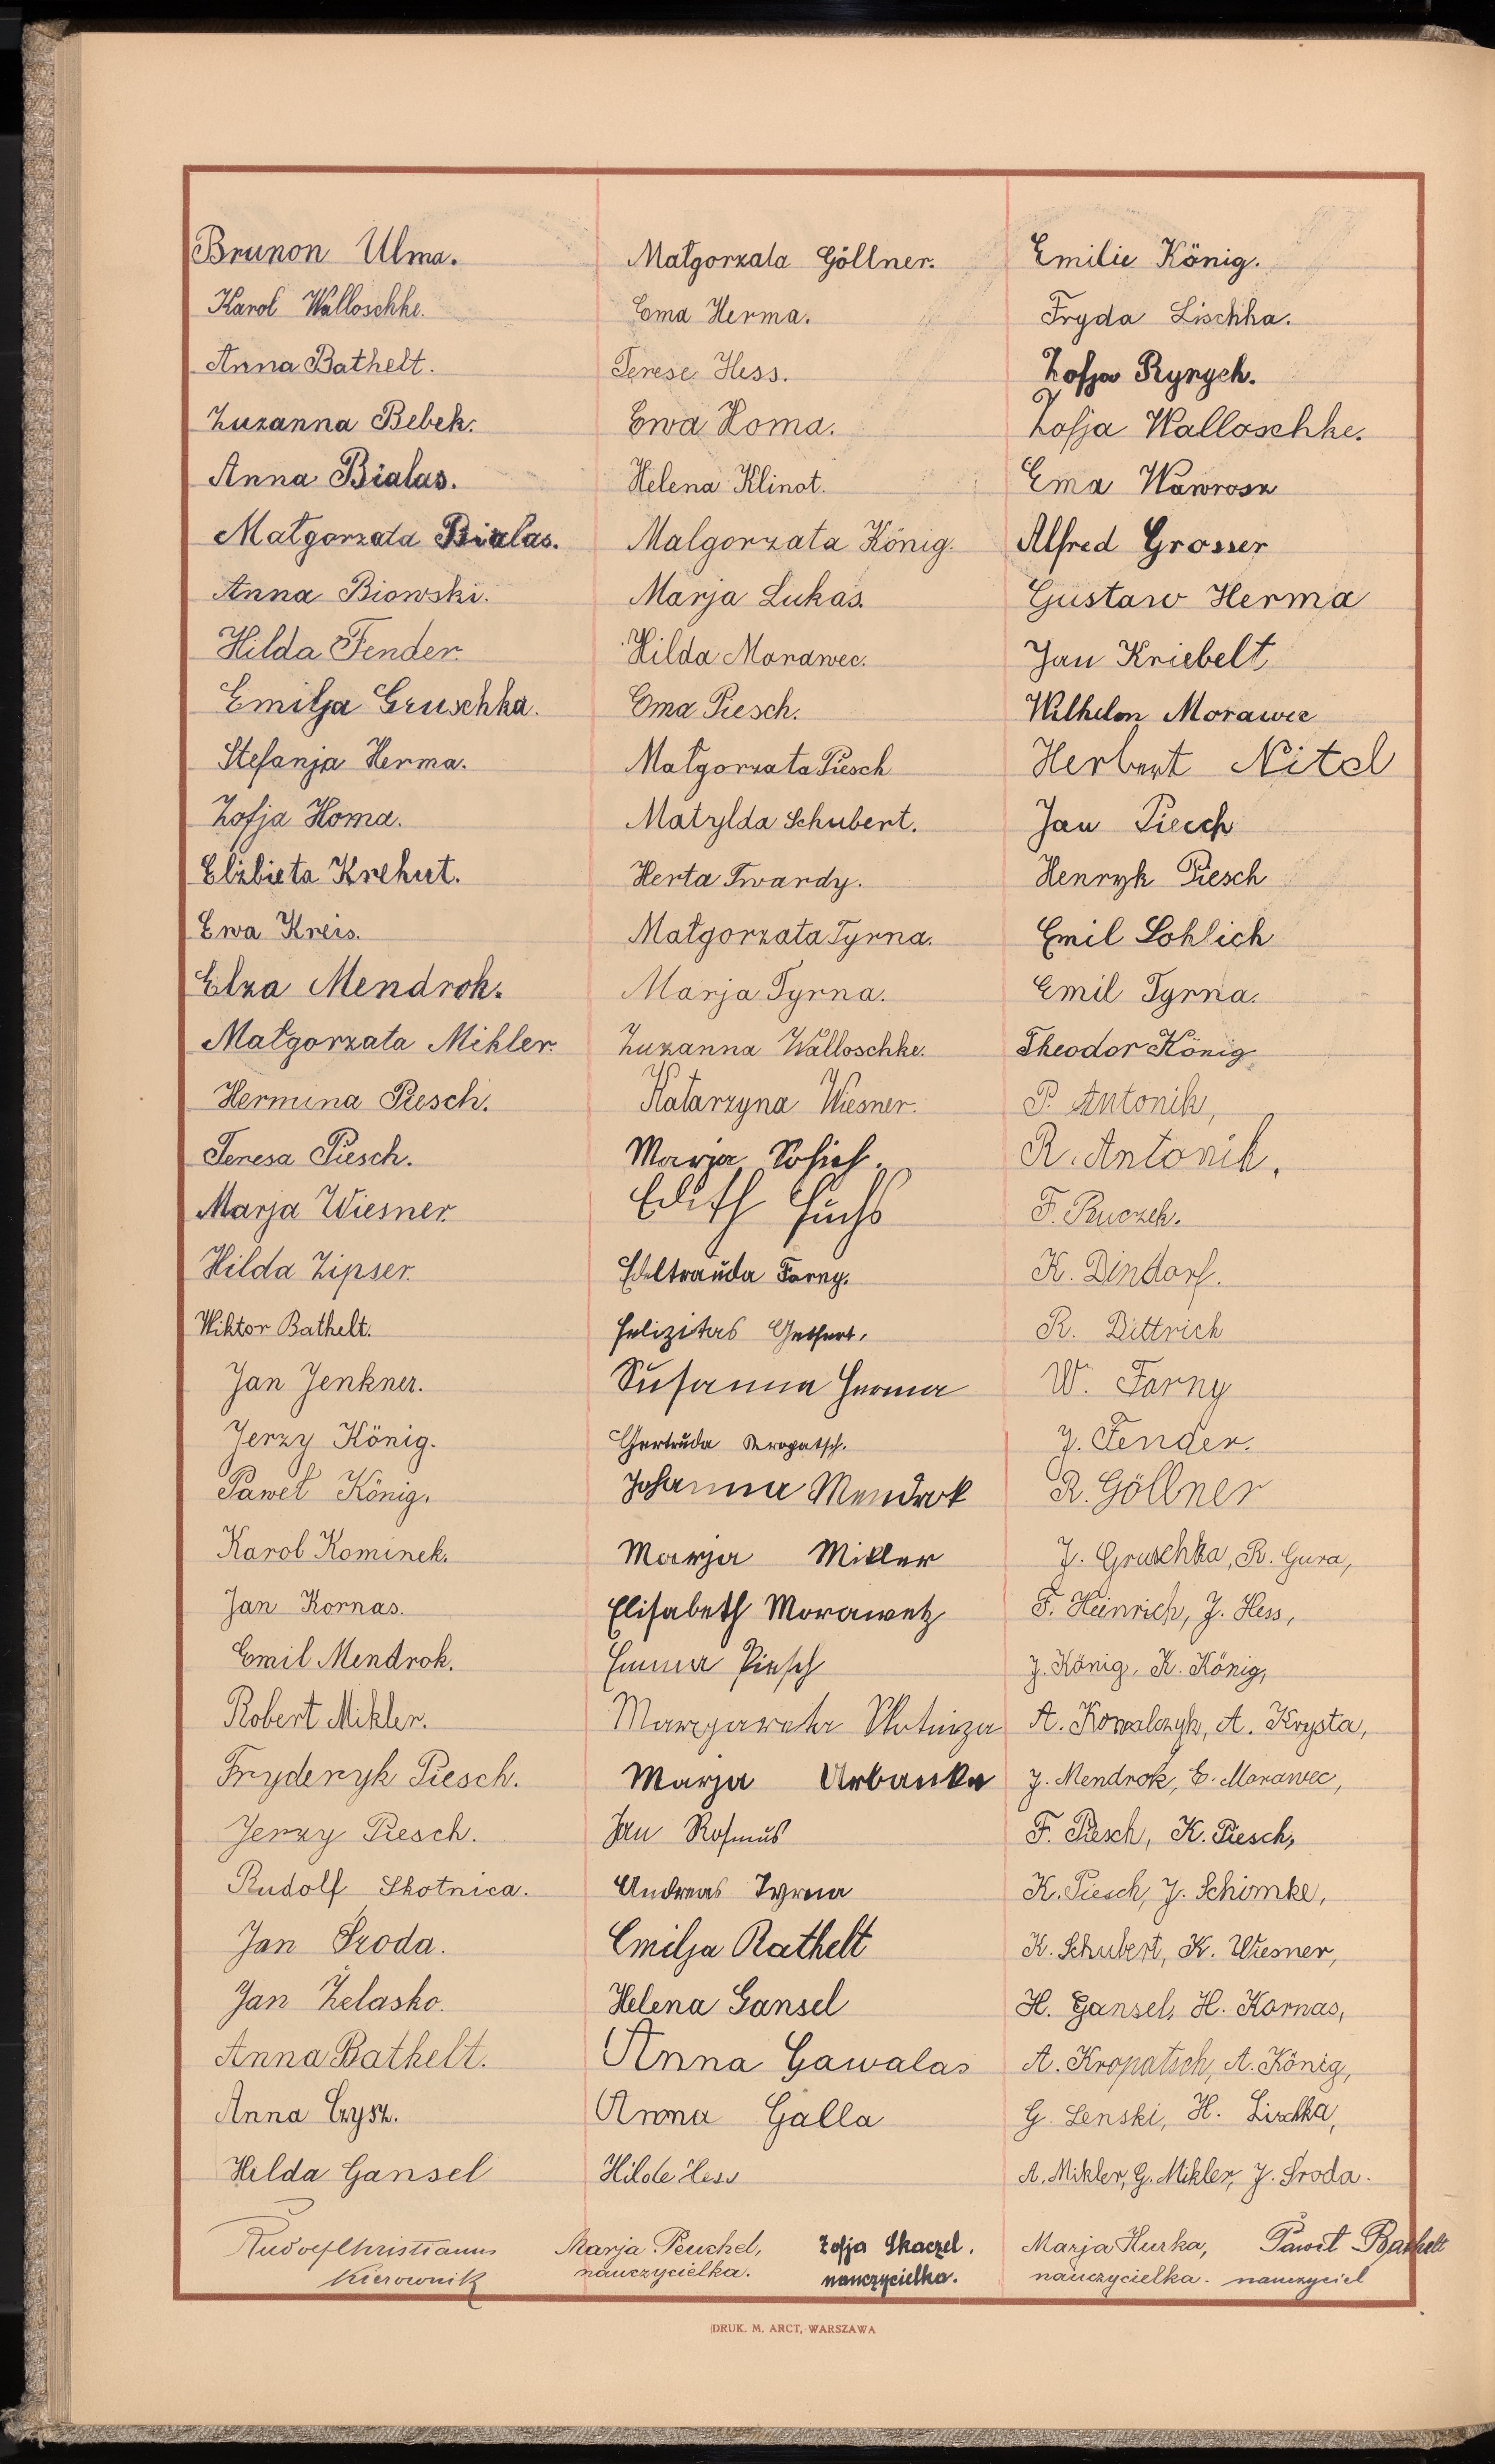 Brunon Ulma.
Karol Walloschke.
Anna Bathelt.
Zuzanna Bebek.
Anna Bialas.
Małgorzata Bialas.
Anna Biowski.
Hilda Fender.
Emilja Gruschka.
Stefanja Herma.
Zofja Homa.
Elżbieta Krehut.
Ewa Kreis.
Elza Mendrok.
Małgorzata Mikler.
Hermina Piesch.
Teresa Piesch.
Marja Wiesner.
Hilda Zipser.
Wiktor Bathelt.
Jan Jenkner.
Jerzy König.
Paweł König.
Karol Kominek.
Jan Kornas.
Emil Mendrok.
Robert Mikler.
Fryderyk Piesch.
Jerzy Piesch.
Rudolf Skotnica.
Jan Środa.
Jan Żelasko.
Anna Bathelt.
Anna Czysz.
Hilda Gansel
Małgorzata Göllner.
Ema Herma.
Terese Hess.
Ewa Homa.
Helena Klinot.
Malgorzata König.
Marja Lukas.
Hilda Morawec.
Ema Piesch.
Małgorzata Piesch
Matylda Schubert.
Herta Twardy.
Małgorzata Tyrna.
Marja Tyrna.
Zuzanna Walloschke.
Katarzyna Wiesner.
Marja
Edith Fuchs
Edeltrauda Farny.
Felizitas
Susanna Herma
Gertruda Kropatsch.
Johanna Mendrok
Marja Mikler
Elisabeth Morawetz
Emma Piesch
Margareta Skotniza
Marja Urbanke
Jan Rosmus
Andreas Tyrna
Emilja Bathelt
Helena Gansel
Anna Gawalas
Anna Galla
Hilde Hess
Emilie König.
Fryda Lischka.
Zofja Rynych.
Zofja Walloschke.
Ema Wawrosz
Alfred Grosser
Gustaw Herma
Jan Kriebelt
Wilhelm Morawec
Herbert Nitel
Jan Piesch
Henryk Piesch
Emil Sohlich
Emil Tyrna.
Theodor König
P. Antonik,
R. Antonik.
F. Buczek.
K. Dindorf.
R. Dittrich
W. Farny
J. Fender.
R. Göllner
J. Gruschka, R. Gura,
F. Heinrich, J. Hess,
J. König, K. König,
A. Kowalczyk, A. Krysta,
J. Mendrok, E. Morawec,
F. Piesch, K. Piesch,
K. Piesch, J. Schimke,
K. Schubert, K. Wiesner,
H. Gansel, H. Kornas,
A. Kropatsch, A. König,
G. Lenski, H. Lischka,
A. Mikler, G. Mikler, J. Środa.
Rudolf Christianus
Kierownik
Marja Peuchel,
nauczycielka.
Zofja Skaczel.
nauczycielka.
Marja Hurka,
nauczycielka.
Paweł Bathelt
nauczyciel
DRUK. M. ARCT, WARSZAWA